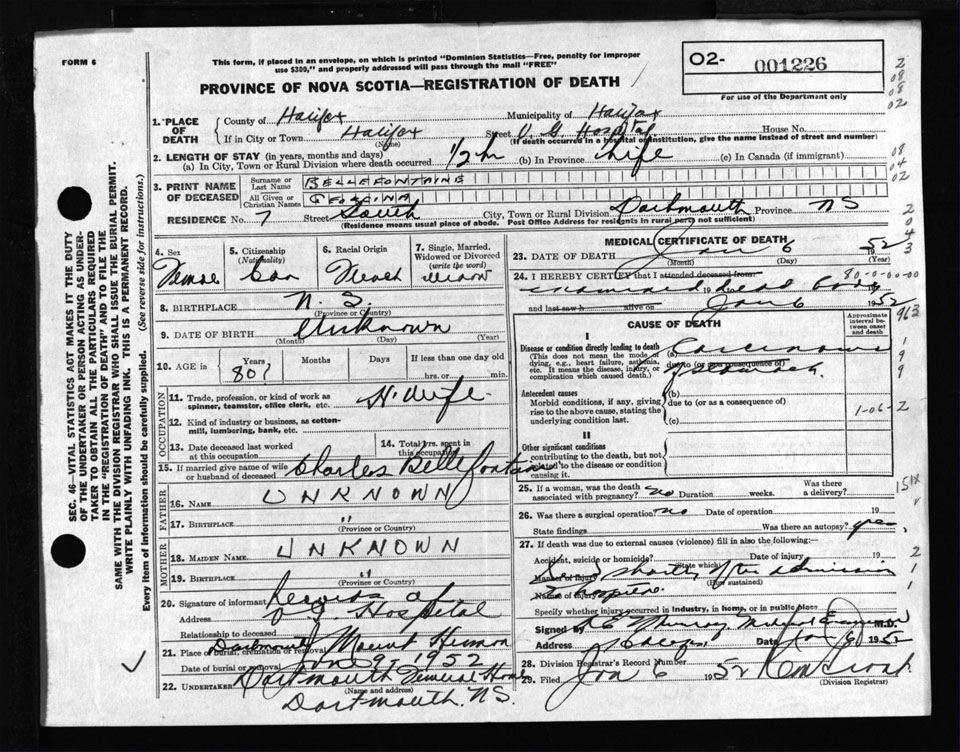 FORM 6
This form, if placed in an envelope, on which is printed "Dominion Statistics—Free, penalty for improper
use $300," and properly addressed will pass through the mail "FREE"
O2- 001226
For use of the Department only
PROVINCE OF NOVA SCOTIA—REGISTRATION OF DEATH
1. PLACE OF DEATH
County of Halifax Municipality of Halifax
If in City or Town Halifax Street V. G. Hospital House No.
(Name) (If death occurred in a hospital or institution, give the name instead of street and number)
2. LENGTH OF STAY (in years, months and days)
(a) In City, Town or Rural Division where death occurred 1/2 h (b) In Province Life (c) In Canada (if immigrant)
3. PRINT NAME OF DECEASED
Surname or Last Name BELLEFONTAINE
All Given or Christian Names GEORGINA
RESIDENCE No. 7 Street South City, Town or Rural Division Dartmouth Province NS
(Residence means usual place of abode. Post Office Address for residents in rural parts not sufficient)
4. Sex
5. Citizenship (Nationality) Can
6. Racial Origin
7. Single, Married, Widowed or Divorced (write the word)
8. BIRTHPLACE N. S.
(Province or Country)
9. DATE OF BIRTH Unknown
(Month) (Day) (Year)
10. AGE in Years Months Days If less than one day old
80 hrs. or min.
OCCUPATION
11. Trade, profession, or kind of work as
spinner, teamster, office clerk, etc. H. Wife
12. Kind of industry or business, as cotton-
mill, lumbering, bank, etc.
13. Date deceased last worked
at this occupation
14. Total yrs. spent in
this occupation
15. If married give name of wife
or husband of deceased Charles Bellefontaine
FATHER
16. Name UNKNOWN
17. Birthplace "
(Province or Country)
MOTHER
18. Maiden Name UNKNOWN
19. Birthplace "
(Province or Country)
20. Signature of informant Records of
Address V. G. Hospital
Relationship to deceased
21. Place of burial, cremation or removal Dartmouth Mount Hermon
Date of burial or removal 9, 1952
22. UNDERTAKER Dartmouth Funeral Home
(Name and address)
Dartmouth, NS.
MEDICAL CERTIFICATE OF DEATH
23. DATE OF DEATH Jan 6 1952
(Month) (Day) (Year)
24. I HEREBY CERTIFY that I attended deceased from
examined dead body
and last saw h alive on Jan 6 1952
80-0-00-00
CAUSE OF DEATH
Approximate interval between onset and death
I
Disease or condition directly leading to death
(This does not mean the mode of dying, e.g., heart failure, asthenia, etc. It means the disease, injury, or complication which caused death.)
(a) Carcinoma
due to (or as a consequence of)
stomach
Antecedent causes
Morbid conditions, if any, giving rise to the above cause, stating the underlying condition last.
(b)
due to (or as a consequence of)
(c)
1-06-2
II
Other significant conditions
contributing to the death, but not related to the disease or condition causing it.
25. If a woman, was the death
associated with pregnancy? no Duration weeks. Was there a delivery?
26. Was there a surgical operation? no Date of operation 19
State findings Was there an autopsy? yes
27. If death was due to external causes (violence) fill in also the following:
Accident, suicide or homicide? Date of injury 19
(State which)
Manner of injury
(How sustained)
shortly after admission
Nature of injury
Specify whether injury occurred in industry, in home, or in public place
Signed by Murray, Medical Examiner M.D.
Address Halifax Date Jan 6 1952
28. Division Registrar's Record Number
29. Filed Jan 6 1952
(Division Registrar)
SEC. 46—VITAL STATISTICS ACT MAKES IT THE DUTY
OF THE UNDERTAKER OR PERSON ACTING AS UNDER-
TAKER TO OBTAIN ALL THE PARTICULARS REQUIRED
IN THE "REGISTRATION OF DEATH" AND TO FILE THE
SAME WITH THE DIVISION REGISTRAR WHO SHALL ISSUE THE BURIAL PERMIT.
WRITE PLAINLY WITH UNFADING INK. THIS IS A PERMANENT RECORD.
Every item of information should be carefully supplied. (See reverse side for instructions.)
2
08
08
02
08
04
02
2
0
4
3
963
1
9
9
151X
2
1
1